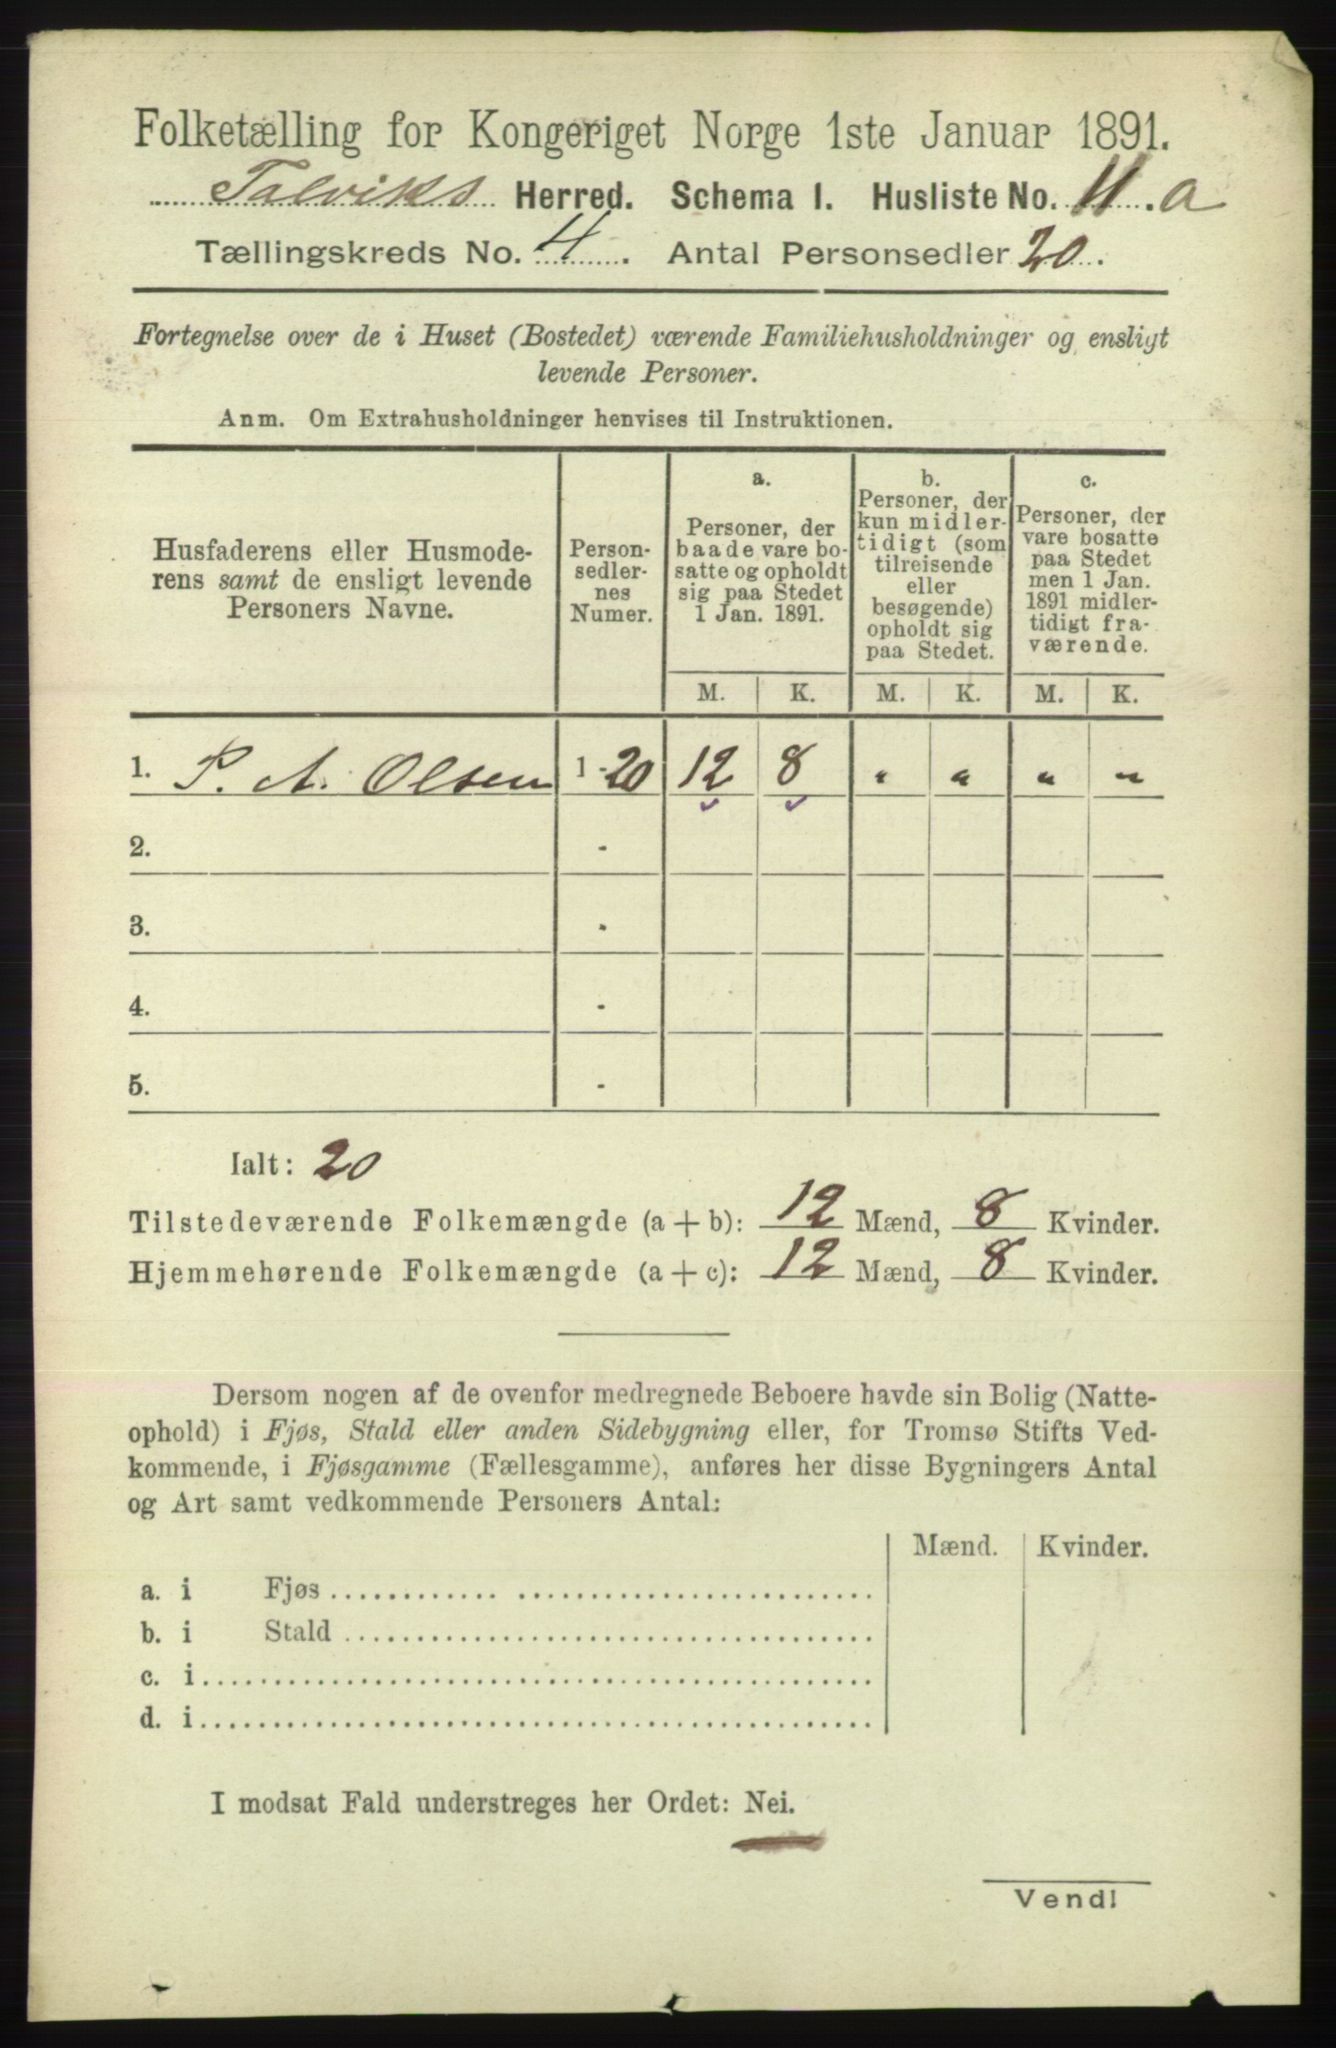 Folketælling for Kongeriget Norge 1ste Januar 1891.
Talviks Herred. Schema I. Husliste No. 11.a
Tællingskreds No. 4. Antal Personsedler 20.
Fortegnelse over de i Huset (Bostedet) værende Familiehusholdninger og ensligt
levende Personer.
Anm. Om Extrahusholdninger henvises til Instruktionen.
Husfaderens eller Husmode-
rens samt de ensligt levende
Personers Navne.
Person-
sedler-
nes
Numer.
a.
Personer, der
baade vare bo-
satte og opholdt
sig paa Stedet
1 Jan. 1891.
b.
Personer, der
kun midler-
tidigt (som
tilreisende
eller
besøgende)
opholdt sig
paa Stedet.
c.
Personer, der
vare bosatte
paa Stedet
men 1 Jan.
1891 midler-
tidigt fra-
værende.
M. K. M. K. M. K.
1. P. A. Olsen 1-20 12 8 " " " "
2. -
3. -
4. -
5. -
Ialt: 20
Tilstedeværende Folkemængde (a + b): 12 Mænd, 8 Kvinder.
Hjemmehørende Folkemængde (a + c): 12 Mænd, 8 Kvinder.
Dersom nogen af de ovenfor medregnede Beboere havde sin Bolig (Natte-
ophold) i Fjøs, Stald eller anden Sidebygning eller, for Tromsø Stifts Ved-
kommende, i Fjøsgamme (Fællesgamme), anføres her disse Bygningers Antal
og Art samt vedkommende Personers Antal:
Mænd. Kvinder.
a. i Fjøs
b. i Stald
c. i
d. i
I modsat Fald understreges her Ordet: Nei.
Vend!